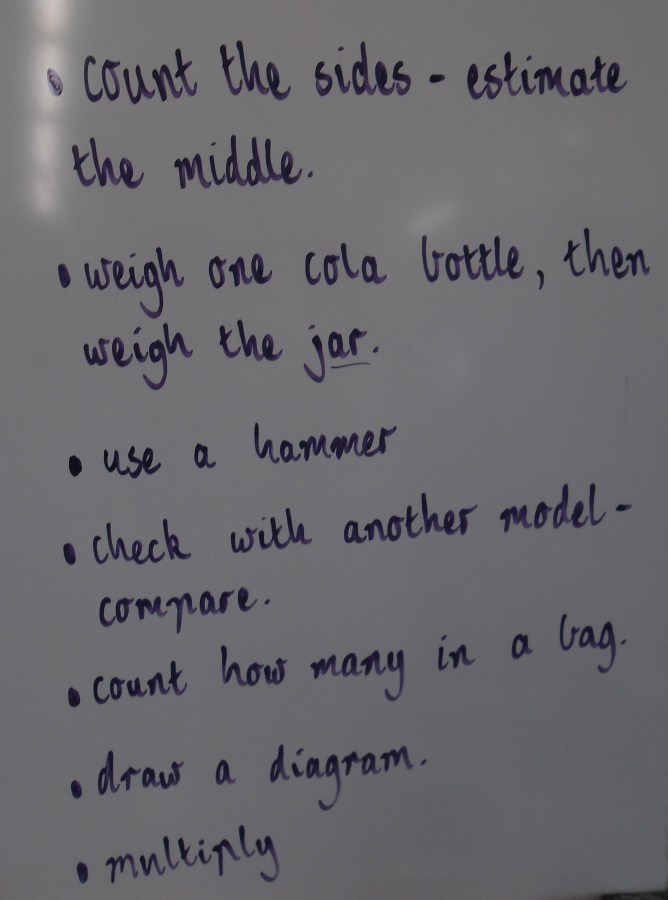 • count the sides - estimate
the middle.
• weigh one cola bottle, then
weigh the jar.
• use a hammer
• check with another model -
compare.
• count how many in a bag.
• draw a diagram.
• multiply